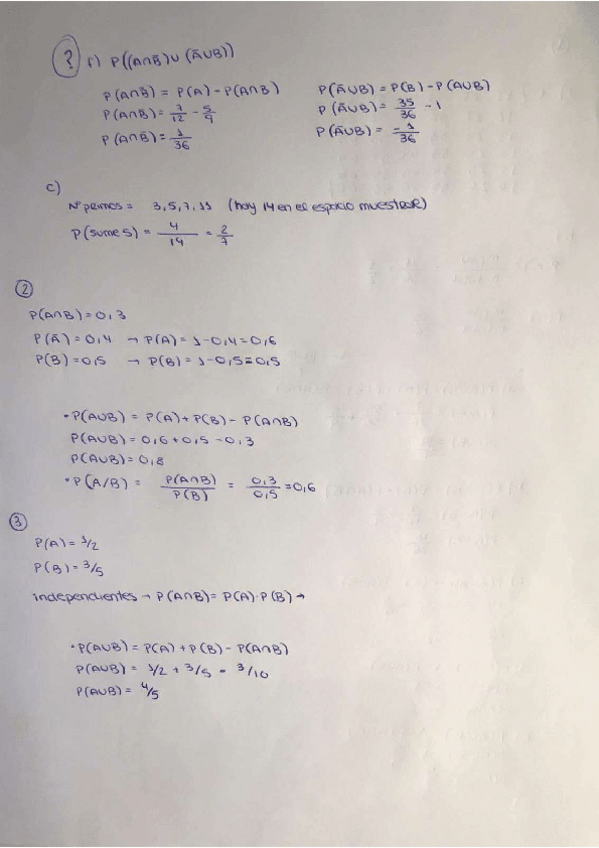 ? f) P((A∩B̄)∪(Ā∪B))
P(A∩B̄) = P(A) - P(A∩B)
P(A∩B̄) = 7/12 - 5/9
P(A∩B̄) = 1/36
P(Ā∪B) = P(B) - P(A∪B)
P(Ā∪B) = 35/36 - 1
P(Ā∪B) = -1/36
c)
Nº primos = 3, 5, 7, 11 (hay 14 en el espacio muestral)
P(sume 5) = 4/14 = 2/7
②
P(A∩B) = 0,3
P(Ā) = 0,4 → P(A) = 1-0,4 = 0,6
P(B) = 0,5 → P(B) = 1-0,5 = 0,5
• P(A∪B) = P(A) + P(B) - P(A∩B)
P(A∪B) = 0,6 + 0,5 - 0,3
P(A∪B) = 0,8
• P(A/B) = P(A∩B)/P(B) = 0,3/0,5 = 0,6
③
P(A) = 1/2
P(B) = 3/5
independientes → P(A∩B) = P(A)·P(B) →
• P(A∪B) = P(A) + P(B) - P(A∩B)
P(A∪B) = 1/2 + 3/5 - 3/10
P(A∪B) = 4/5